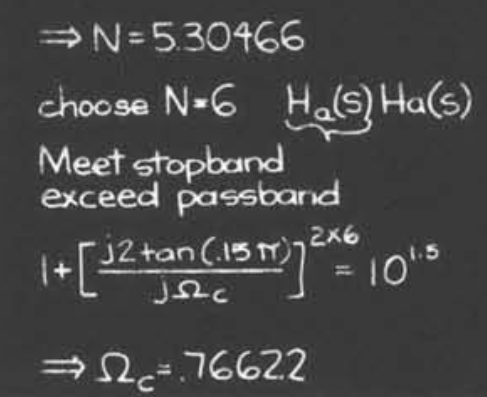 ⇒ N=5.30466
choose N=6 Ha(s) Ha(s)
Meet stopband
exceed passband
1+[j2tan(.15π)/jΩc]^2×6 = 10^1.5
⇒ Ωc=.76622